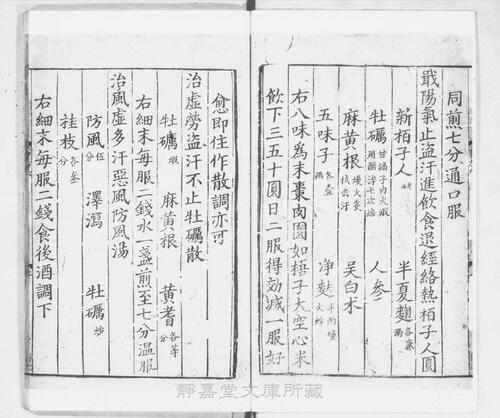 同煎七分通口服
戢陽氣止盜汗進飲食退經絡熱栢子人圓
新栢子人研 半夏麴各貳兩
牡礪甘鍋子内火煅用醋淬七次焙 人參
麻黄根慢火炙拭去汗 吴白术
五味子各壹兩 净麩半兩慢火炒
右八味爲末棗肉圓如梧子大空心米
飲下三五十圓日二服得効減一服好
愈即住作散調亦可
治虚勞盜汗不止牡礪散
牡礪煅 麻黄根 黄耆各等分
右細末每服二錢水一盞煎至七分温服
治風虚多汗惡風防風湯
防風伍分 澤瀉 牡礪炒
桂枝各叁分
右細末每服二錢食後酒調下
靜嘉堂文庫所藏